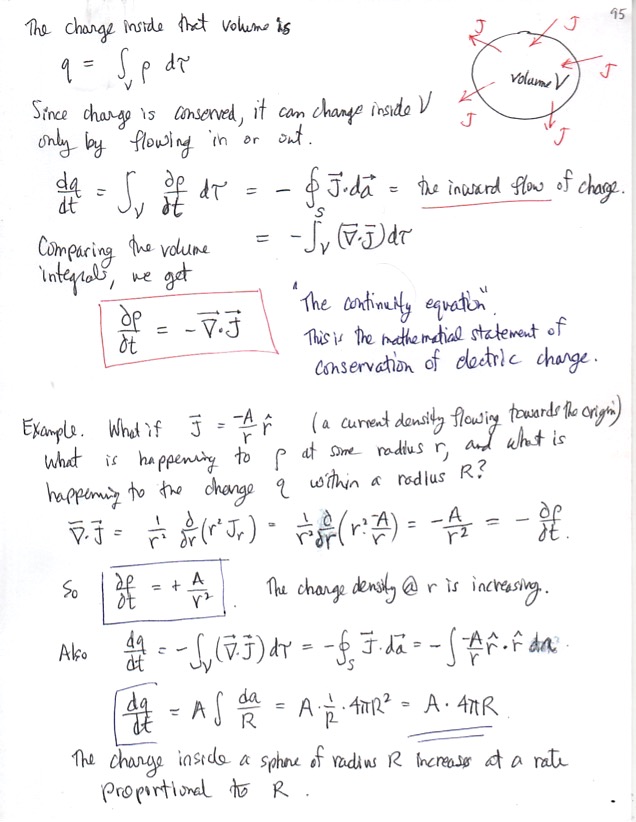 95
The charge inside that volume is
q = ∫_V ρ dτ
J J J J J
volume V
Since charge is conserved, it can change inside V
only by flowing in or out.
dq/dt = ∫_V ∂ρ/∂t dτ = - ∮_S J⃗·da⃗ = the inward flow of charge.
= - ∫_V (∇⃗·J⃗) dτ
Comparing the volume
integrals, we get
∂ρ/∂t = - ∇⃗·J⃗
"The continuity equation".
This is the mathematial statement of
conservation of electric charge.
Example. What if J⃗ = -A/r r̂ (a current density flowing towards the origin)
What is happening to ρ at some radius r, and what is
happening to the charge q within a radius R?
∇⃗·J⃗ = 1/r² ∂/∂r (r² J_r) = 1/r² ∂/∂r (r² -A/r) = -A/r² = - ∂ρ/∂t.
So ∂ρ/∂t = + A/r². The charge density @ r is increasing.
Also dq/dt = - ∫_V (∇⃗·J⃗) dτ = - ∮_S J⃗·da⃗ = - ∫ -A/r r̂·r̂ da.
dq/dt = A ∫ da/R = A·1/R·4πR² = A·4πR
The charge inside a sphere of radius R increases at a rate
proportional to R.